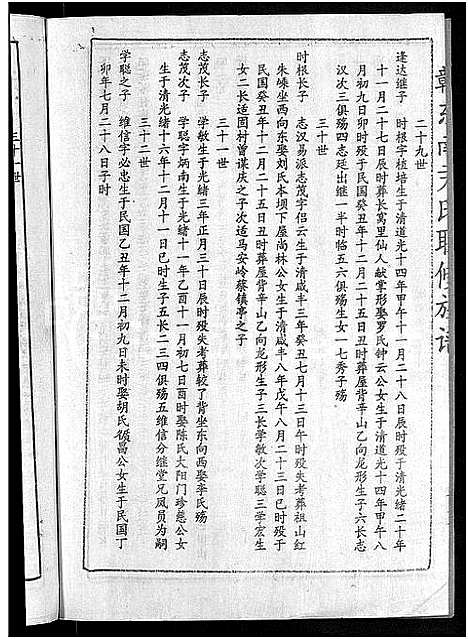 二十九世
逢达继子　时根字植培生于清道光十四年甲午十一月二十八日辰时殁于清光绪二十年
十一月二十七日辰时葬长窝里仙人献掌形娶罗氏钟云公女生于清道光十四年甲午八
月初九日卯时殁于民国癸丑年十二月二十五日丑时葬屋背辛山乙向龙形生子六长志
汉次三俱殇四志廷出继一半时临五六俱殇生女一七秀子殇
三十世
时根长子　志汉易派志茂字侣云生于清咸丰三年癸丑七月十三日午时殁失考葬祖山红
朱崠坐西向东娶刘氏本坝下屋尚林公女生于清咸丰八年戊午八月二十三日时殁于
民国癸丑年十二月二十五日丑时葬屋背辛山乙向龙形生子三长学敏次学聪三学宏生
女二长适固村曾谋庆之子次适马安岭蔡镇亭之子
三十一世
志茂长子　学敏生于光绪三年正月三十日辰时殁失考葬较了背坐东向西娶李氏殇
志茂次子　学聪字炳南生于光绪十一年乙酉十一月初七日酉时娶陈氏大阳门珍慈公女
生于清光绪十六年十二月十一日巳时生子五长二三四俱殇五维信分继堂兄凤员为嗣
三十二世
学聪之子　维信字必忠生于民国乙丑年十二月初九日未时娶胡氏㒹昌公女生于民国丁
卯年七月二十八日子时
三十一世